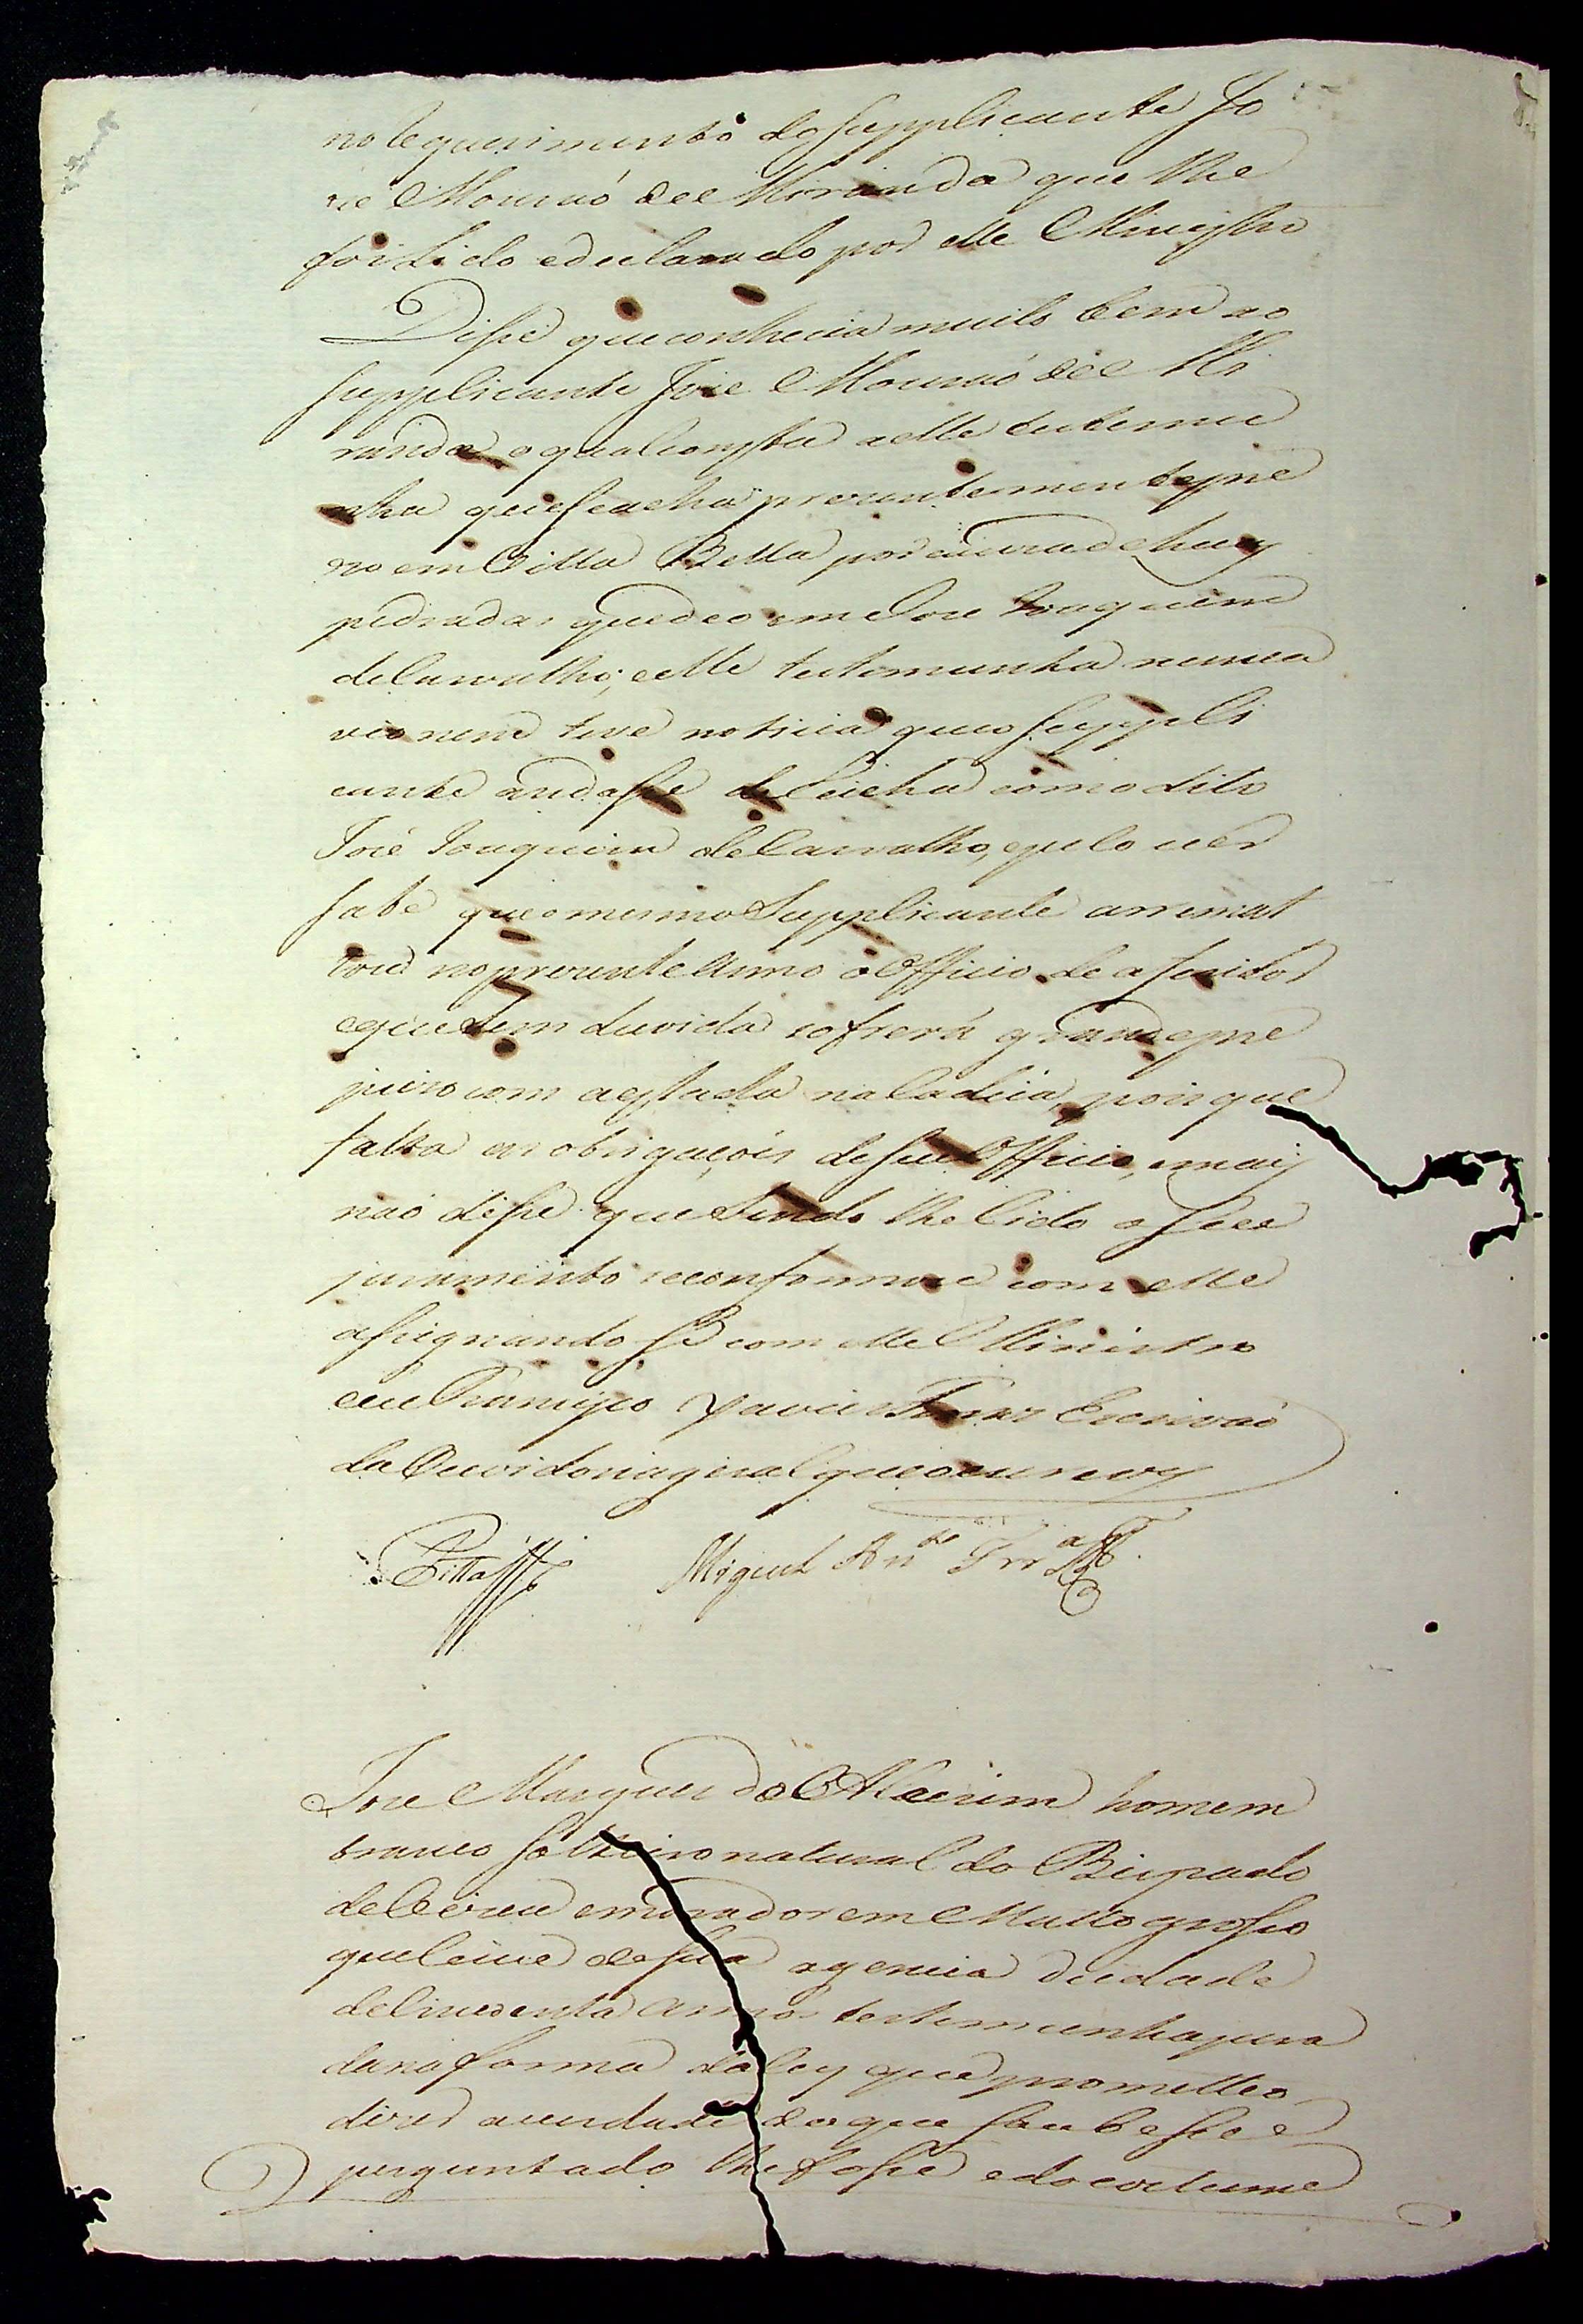 no requerimento do Supplicante Jo
zé Mouraó de Miranda que lhe
foi lido e declarado por elle Ministro
Disse que conhecia muito bem ao
Supplicante Joze Mouraó de Mi
randa o qual consta a elle testemu
nha que se acha prezentemente pre
zo em Villa Bella por cauza de huas
pedradas que deo em Joze Joaquim
de Carvalho; e elle testemunha nunca
vio nem teve noticia que o Suppli
cante andasse de richa com o dito
José Joaquim de Carvalho, e pelo ver
sabe que o mesmo Supplicante arremat
tou no prezente anno o Officio de aferidor
e que sem duvida sofrerá grande pre
juizo com a estada na Cadeia, pois que
falta as obrigaçoẽs de seu Officio, e mais
naó disse que sendo lhe lido o seu
juramento se conformou com elle
assignando se com elle Ministro
e eu Francisco Xavier Escrivaó
da Ouvidoria geral que o escrevy
Pitta
Miguel Anto Frra
Joze Marques do Alecrim homem
branco solteiro natural do Bispado
de Vizeu e morador em Matto grosso
que vive de sua agencia de idade
de sincoenta annos testemunha jura
da na forma da ley que prometteo
dizer a verdade do que soubesse e
perguntado lhe fosse e do costume